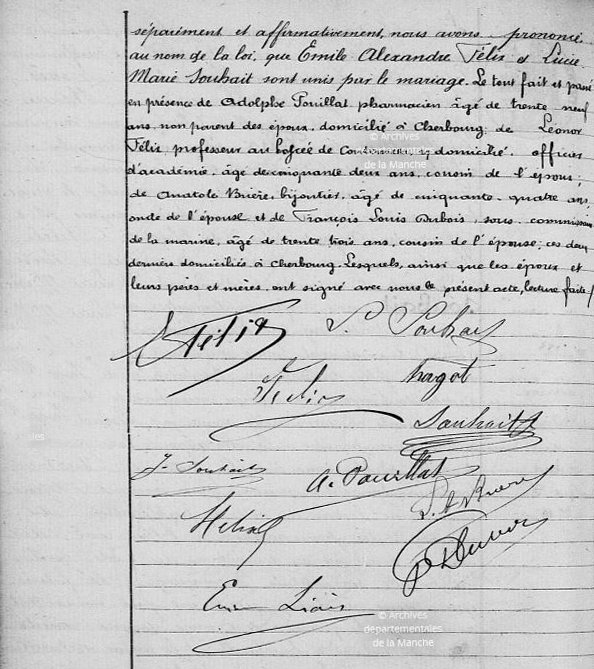 séparément et affirmativement, nous avons prononcé,
au nom de la loi, que Emile Alexandre Félix et Lucie
Marie Souhait sont unis par le mariage. Le tout fait et passé
en présence de Adolphe Pouillat pharmacien âgé de trente neuf
ans, non parent des époux, domicilié à Cherbourg; de Léonor
Félix, professeur au Lycée de domicilié, officier
d'académie, âgé de cinquante deux ans, cousin de l'époux;
de Anatole Brière, bijoutier, âgé de cinquante quatre ans,
oncle de l'épouse et de François Louis Dubois, sous-commissaire
de la marine, âgé de trente trois ans, cousin de l'épouse; ces deux
derniers domiciliés à Cherbourg. Lesquels, ainsi que les époux et
leurs pères et mères, ont signé avec nous le présent acte, lecture faite./.
© Archives
départementales
de la Manche
Félix L. Souhait
Félix hagot
Souhait
J. Souhait A. Pouillat
Félix
Liais
© Archives
départementales
de la Manche